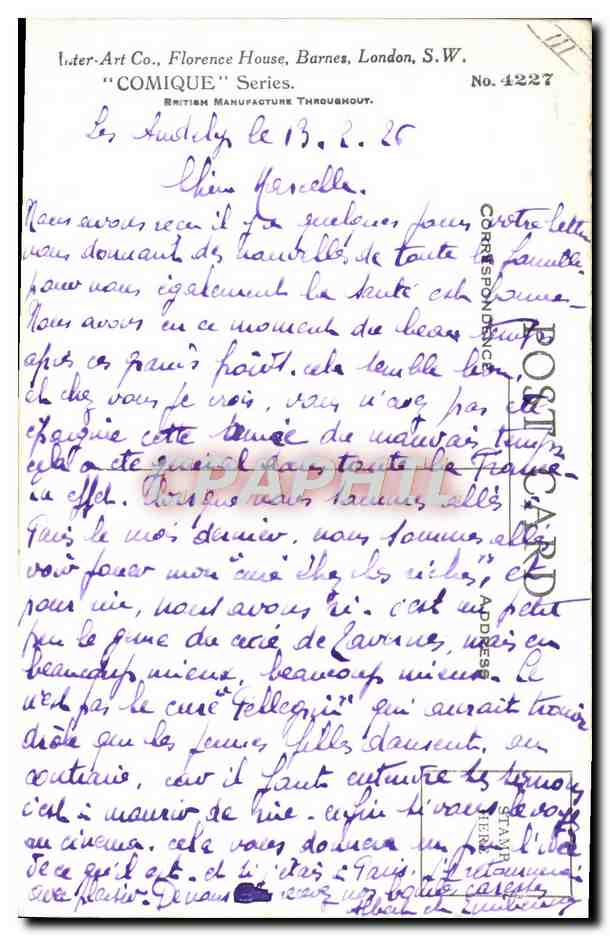 Inter-Art Co., Florence House, Barnes, London, S.W.
"COMIQUE" Series. No. 4227
BRITISH MANUFACTURE THROUGHOUT.
Les Andelys le 13.2.26
Chère Marcelle.
Nous avons reçu il y a quelques jours votre lettre
nous donnant des nouvelles de toute la famille.
pour nous également la santé est bonne.
Nous avons en ce moment du beau temps
après ces grands froids. cela semble bon,
et chez vous je crois, vous n'avez pas été
épargnée cette année du mauvais temps
cela a été général dans toute la France
en effet. Lorsque nous sommes allés
Paris le mois dernier, nous sommes allés
voir jouer mon "curé chez les riches", et
pour rire, nous avons ri. c'est un petit
peu le genre du curé de Tavernes, mais en
beaucoup mieux, beaucoup mieux. Ce
n'est pas le curé "Pellegrin" qui aurait trouvé
drôle que les jeunes filles dansent. au
contraire, car il faut entendre les sermons
c'est à mourir de rire. enfin si vous le voyez
au cinéma. cela vous donnera un peu l'idée
de ce qu'il est. et si j'étais à Paris. j'y retournerai
avec plaisir. De nous recevez nos bonnes caresses
Albert et
CORRESPONDENCE
POST CARD
ADDRESS
STAMP
HERE
CPAPHIL